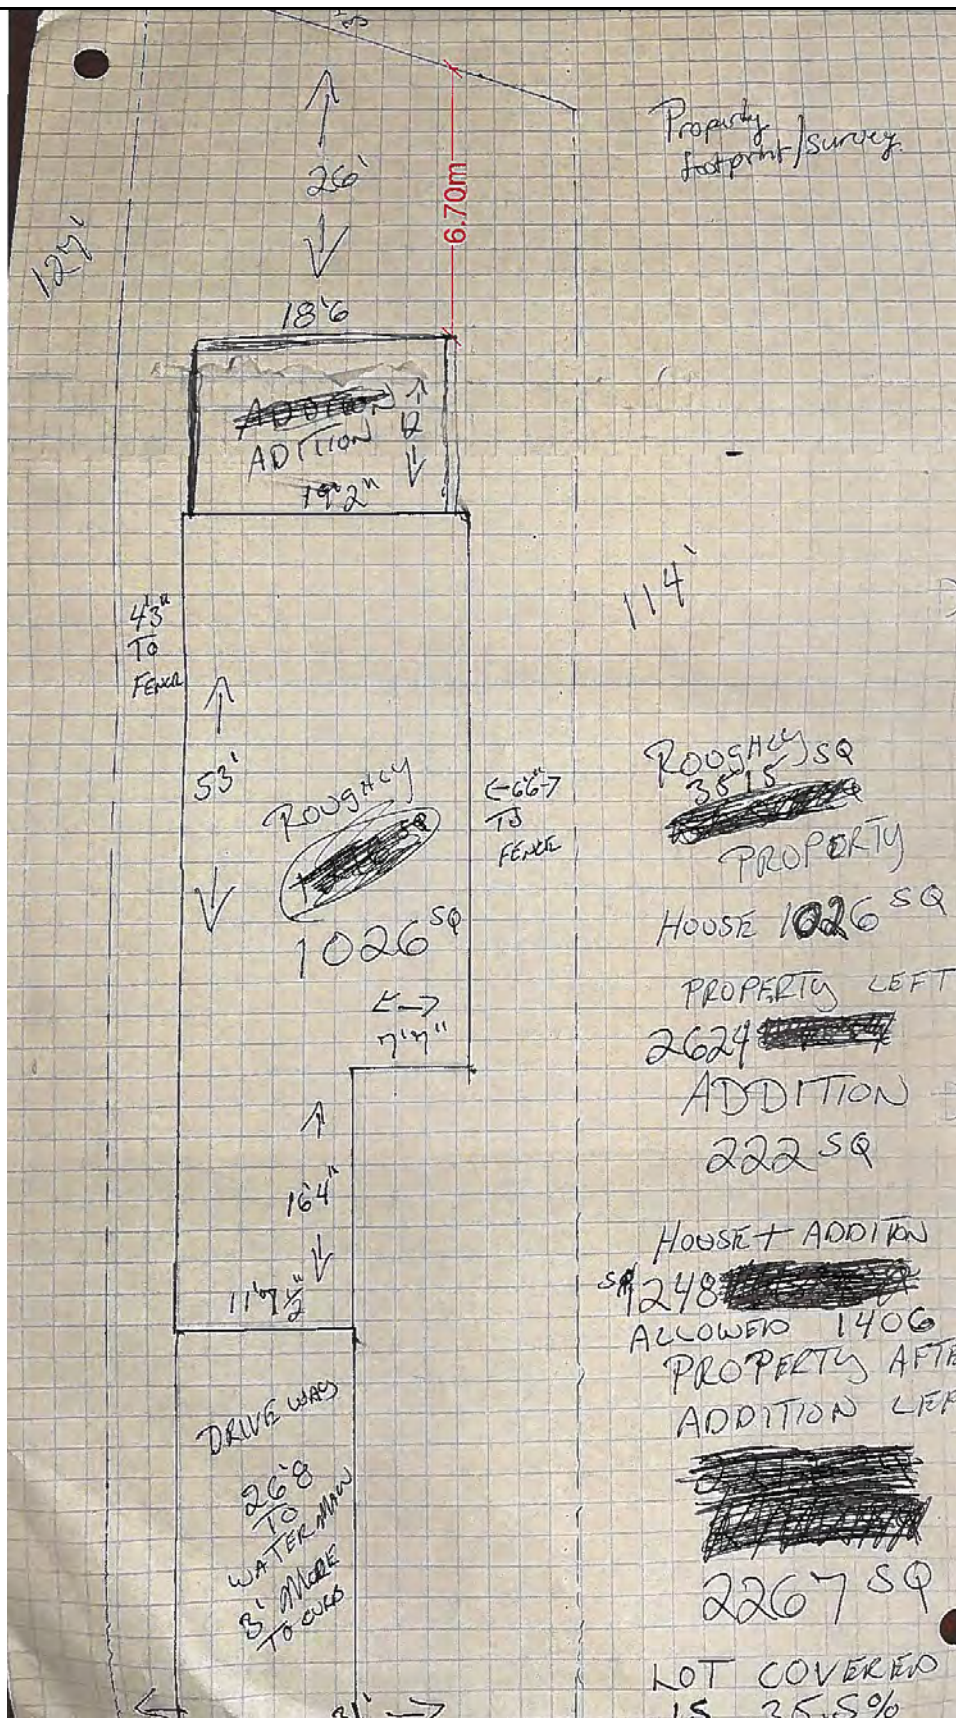 Property
footprint/survey
26'
6.70m
127'
18'6
ADITION
12
19'2"
114'
4'3"
TO
FENCE
53'
ROUGHLY
1026 SQ
←6'6"→
TO
FENCE
7'7"
16'4"
11'7 1/2"
DRIVE WAY
26'8
TO
WATER MAIN
3' MORE
TO CURB
31'
ROUGHLY SQ
3515
PROPERTY
HOUSE 1026 SQ
PROPERTY LEFT
2624
ADDITION
222 SQ
HOUSE + ADDITON
SQ 1248
ALLOWED 1406
PROPERTY AFTE
ADDITION LEF
2267 SQ
LOT COVERED
IS 35.5%